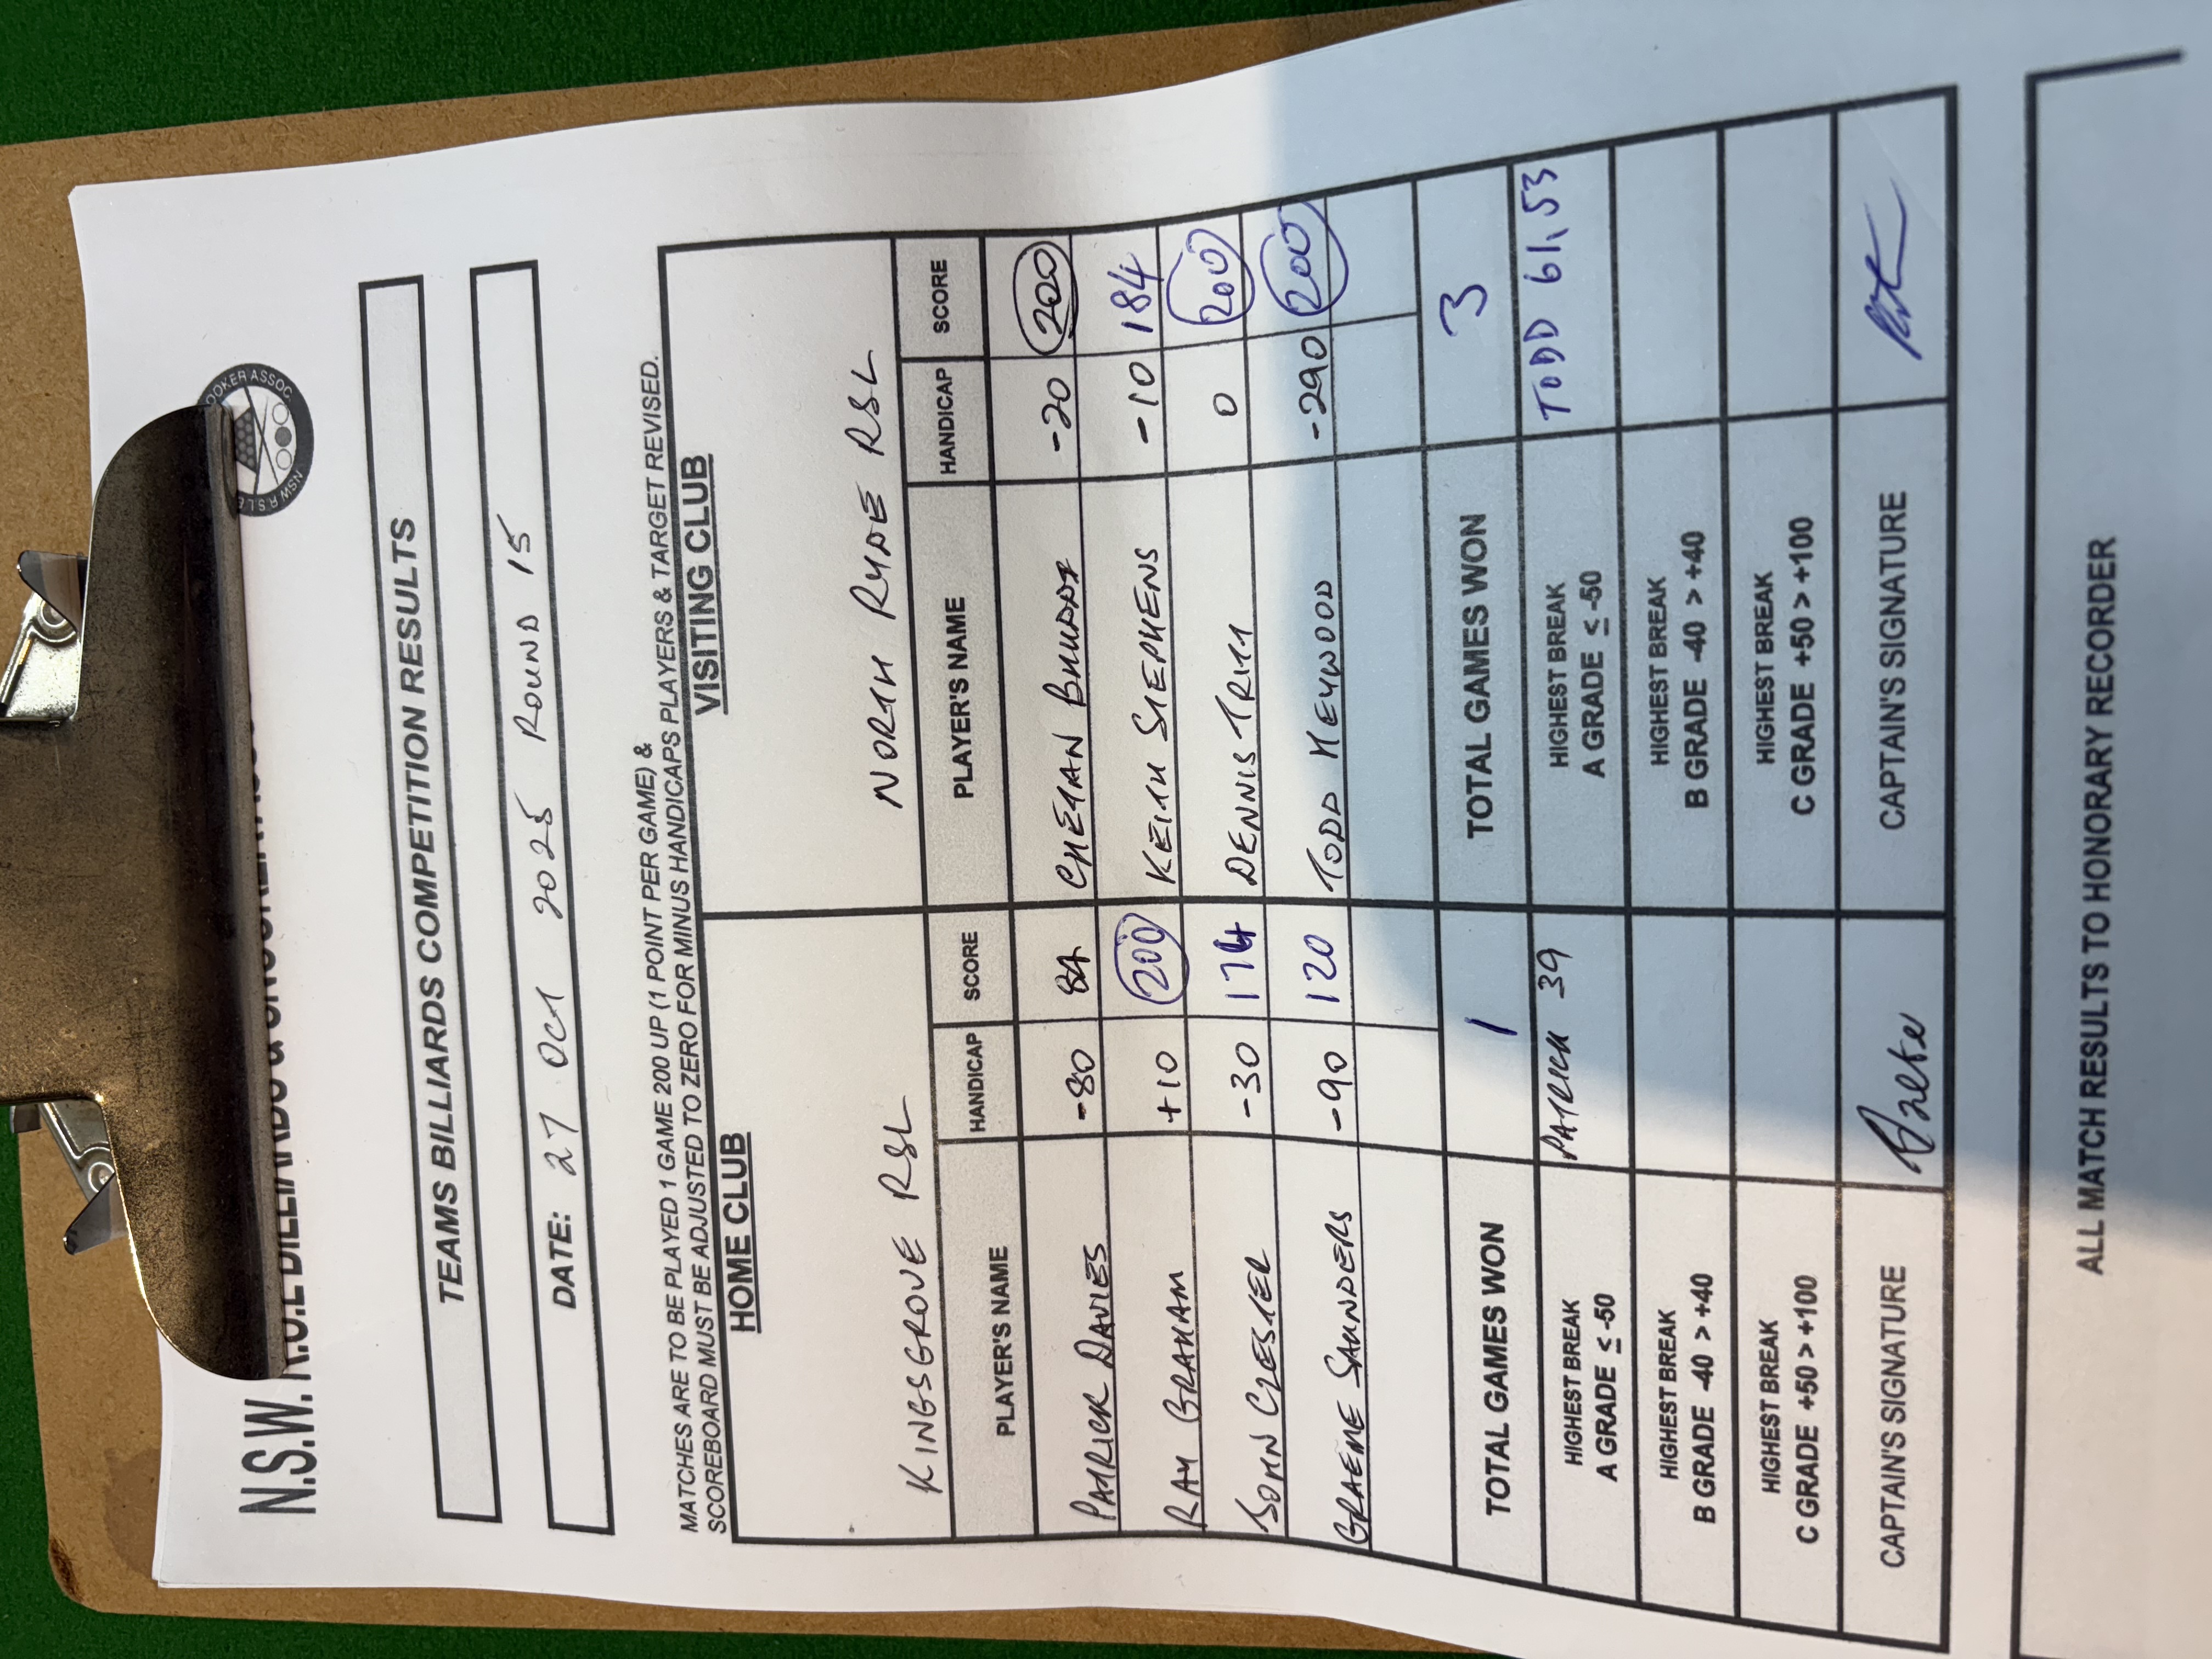 N.S.W. R.S.L BILLIARDS & SNOOKER ASSOC
OKER ASSOC. NSW R.S.L B
TEAMS BILLIARDS COMPETITION RESULTS
DATE: 27 OCT 2025 ROUND 15
MATCHES ARE TO BE PLAYED 1 GAME 200 UP (1 POINT PER GAME) &
SCOREBOARD MUST BE ADJUSTED TO ZERO FOR MINUS HANDICAPS PLAYERS & TARGET REVISED.
HOME CLUB VISITING CLUB
KINGSGROVE RSL NORTH RYDE RSL
PLAYER'S NAME HANDICAP SCORE PLAYER'S NAME HANDICAP SCORE
PATRICK DAVIES -80 84 CHETAN -20 200
RAY GRAHAM +10 200 KEITH STEPHENS -10 184
JOHN -30 174 DENNIS TRIM 0 200
GRAEME SAUNDERS -90 120 TODD HEYWOOD -290 200
TOTAL GAMES WON 1 TOTAL GAMES WON 3
HIGHEST BREAK PATRICK 39 HIGHEST BREAK TODD 61, 53
A GRADE ≤ -50 A GRADE ≤ -50
HIGHEST BREAK HIGHEST BREAK
B GRADE -40 > +40 B GRADE -40 > +40
HIGHEST BREAK HIGHEST BREAK
C GRADE +50 > +100 C GRADE +50 > +100
CAPTAIN'S SIGNATURE CAPTAIN'S SIGNATURE
ALL MATCH RESULTS TO HONORARY RECORDER